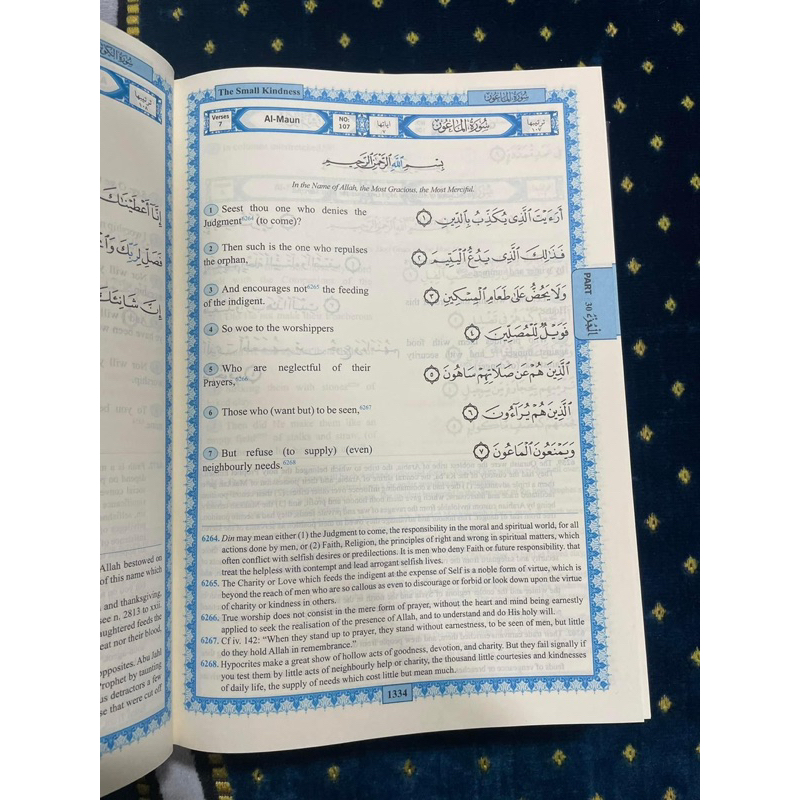 The Small Kindness
سُورَةُ المَاعُون
Verses
7
Al-Maun
NO:
107
اٰياتها
٧
سُورَةُ المَاعُون
ترتيبها
١٠٧
بِسْمِ اللَّهِ الرَّحْمَٰنِ الرَّحِيمِ
In the Name of Allah, the Most Gracious, the Most Merciful.
1 Seest thou one who denies the
Judgment6264 (to come)?
أَرَءَيْتَ ٱلَّذِى يُكَذِّبُ بِٱلدِّينِ ١
2 Then such is the one who repulses
the orphan,
فَذَٰلِكَ ٱلَّذِى يَدُعُّ ٱلْيَتِيمَ ٢
3 And encourages not6265 the feeding
of the indigent.
وَلَا يَحُضُّ عَلَىٰ طَعَامِ ٱلْمِسْكِينِ ٣
4 So woe to the worshippers
فَوَيْلٌ لِّلْمُصَلِّينَ ٤
5 Who are neglectful of their
Prayers,6266
ٱلَّذِينَ هُمْ عَن صَلَاتِهِمْ سَاهُونَ ٥
6 Those who (want but) to be seen,6267
ٱلَّذِينَ هُمْ يُرَآءُونَ ٦
7 But refuse (to supply) (even)
neighbourly needs.6268
وَيَمْنَعُونَ ٱلْمَاعُونَ ٧
PART 30 الجزء
6264. Din may mean either (1) the Judgment to come, the responsibility in the moral and spiritual world, for all
actions done by men, or (2) Faith, Religion, the principles of right and wrong in spiritual matters, which
often conflict with selfish desires or predilections. It is men who deny Faith or future responsibility. that
treat the helpless with contempt and lead arrogant selfish lives.
6265. The Charity or Love which feeds the indigent at the expense of Self is a noble form of virtue, which is
beyond the reach of men who are so callous as even to discourage or forbid or look down upon the virtue
of charity or kindness in others.
6266. True worship does not consist in the mere form of prayer, without the heart and mind being earnestly
applied to seek the realisation of the presence of Allah, and to understand and do His holy will.
6267. Cf iv. 142: "When they stand up to prayer, they stand without earnestness, to be seen of men, but little
do they hold Allah in remembrance."
6268. Hypocrites make a great show of hollow acts of goodness, devotion, and charity. But they fail signally if
you test them by little acts of neighbourly help or charity, the thousand little courtesies and kindnesses
of daily life, the supply of needs which cost little but mean much.
1334
إِنَّآ أَعْطَيْنَٰكَ
فَصَلِّ لِرَبِّكَ وَٱ
إِنَّ شَانِئَكَ
Allah bestowed on
of this name which
and thanksgiving,
see n. 2813 to xxii.
aughtered feeds the
eat nor their blood,
opposites. Abu Jahl
Prophet by taunting
as detractors a few
se that were cut off